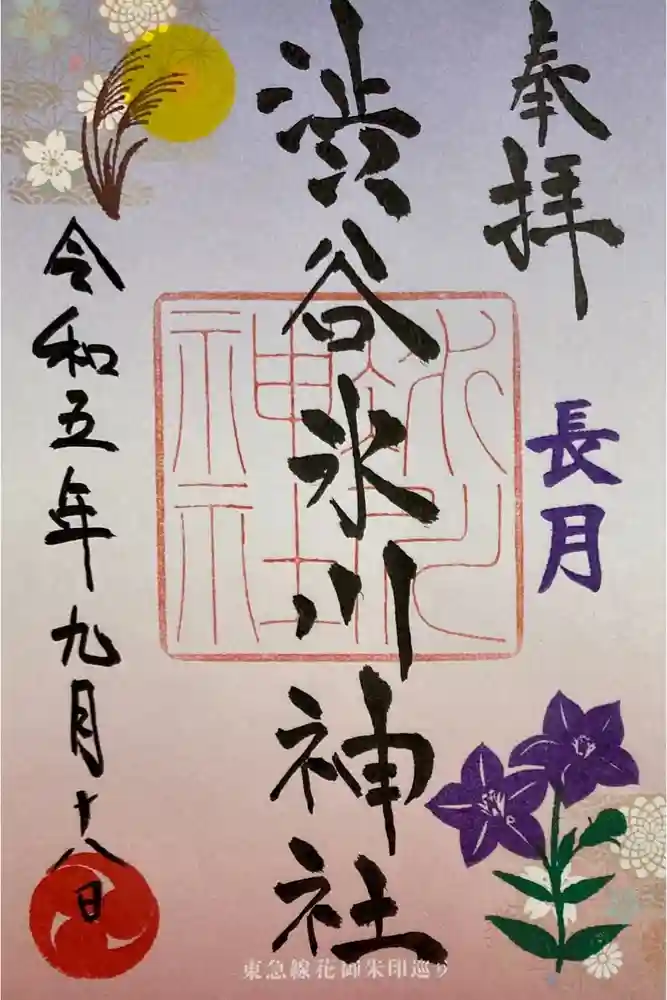 奉拝
長月
渋谷氷川神社
令和五年九月十八日
東急線花御朱印巡り